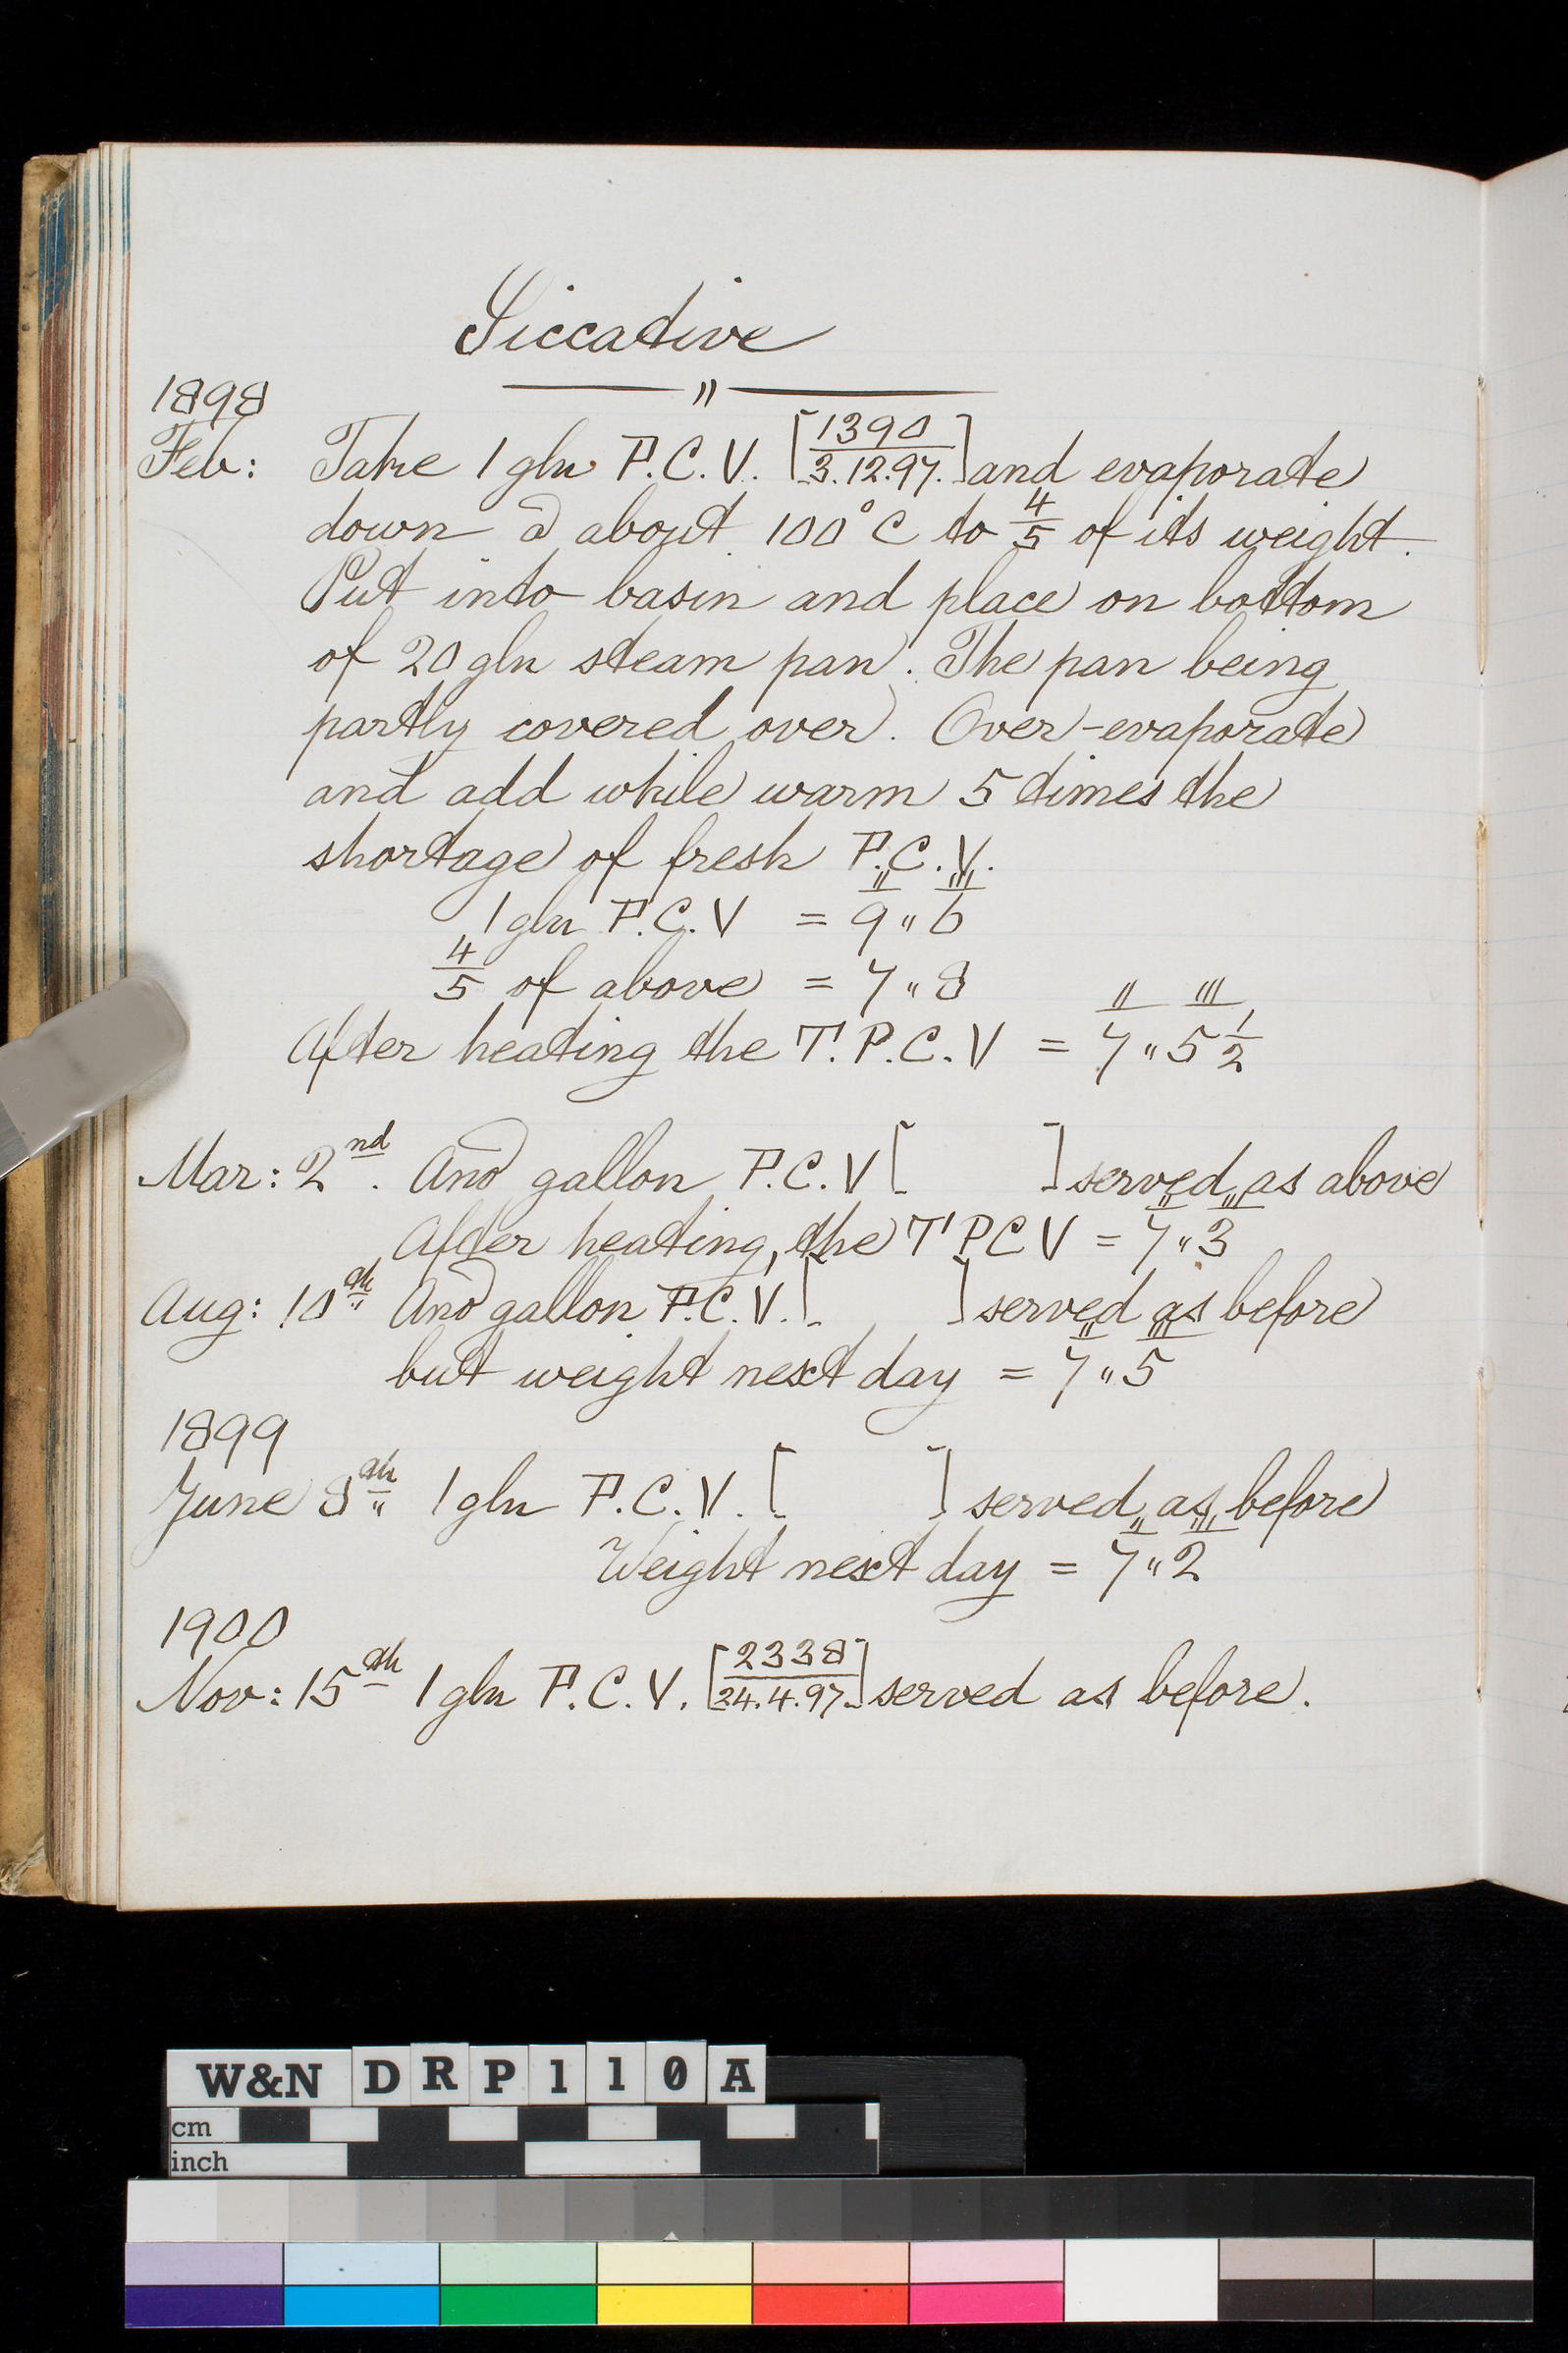 Siccative
"
1898
Feb: Take 1 gln P.C.V. [1390/3.12.97.] and evaporate
down @ about 100°C to 4/5 of its weight.
Put into basin and place on bottom
of 20 gln steam pan. The pan being
partly covered over. Over-evaporate
and add while warm 5 times the
shortage of fresh P.C.V.
1 gln P.C.V = 9 " 6
4/5 of above = 7 " 8
After heating the T.P.C.V = 7 " 5 1/2
Mar: 2nd. Ano gallon P.C.V [ ] served as above
After heating, the TPCV = 7 " 3
Aug: 10th Ano gallon P.C.V. [ ] served as before
but weight next day = 7 " 5
1899
June 8th 1 gln P.C.V. [ ] served as before
Weight next day = 7 " 2
1900
Nov: 15th 1 gln P.C.V. [2338/24.4.97.] served as before.
W&N DRP110A
cm
inch